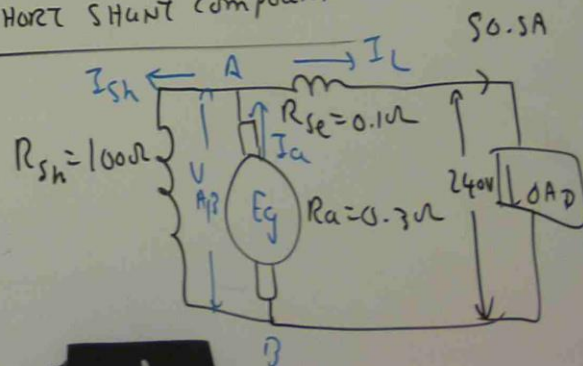 SHORT SHUNT Compou
50.5A
Ish A IL
Rse=0.1Ω
Rsh=100Ω
Ia
VAB
Eg
Ra=0.3Ω
240V
LOAD
B